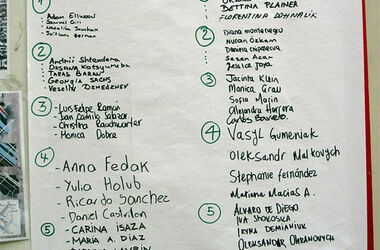 1
Adam Ellwood
Samuel Gil
2
Andrii Shtendera
Oksana Kotsyumba
Taras Baran
Georgia Sachs
Veselin Dzhedzhev
3
- Luis Felipe Ramón
- Jan Camilo Salazar
- Christina Rauchwarter
- Monica Dobre
4
- Anna Fedak
- Yulia Holub
- Ricardo Sanchez
- Daniel Castrillon
5
- Carina Isaza
- Maria A. Diaz
Bettina Plainer
Florentina Dohnalik
2
Diana Montenegro
Nuran Özkam
Sezen Acar
Jessica Joya
3
Jacinta Klein
Monica Grau
Sofia Marin
Alejandra Herrera
Carlos
4
Vasyl Gumeniak
Oleksandr Malkovych
Stephanie Fernández
Mariana Macias A.
5
Alvaro de Diego
Iva Shokoska
Iryna Demianiuk
Oleksander Okhranovych